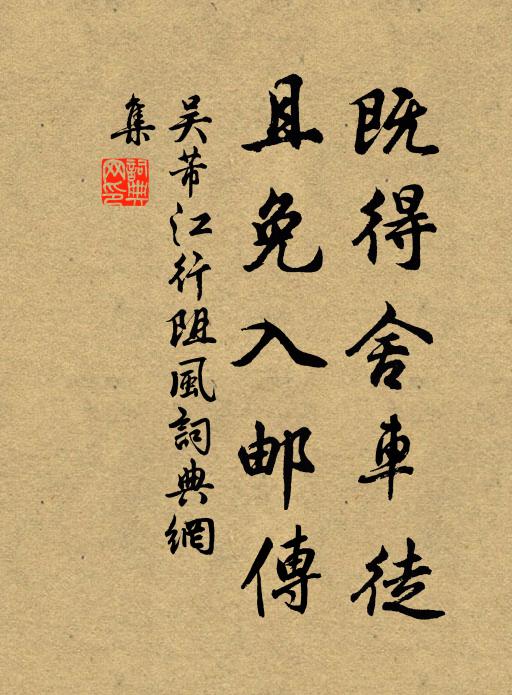 既得舍車徒
且免入邮傳
吴芾江行阻風詞典網
集
詞典网印